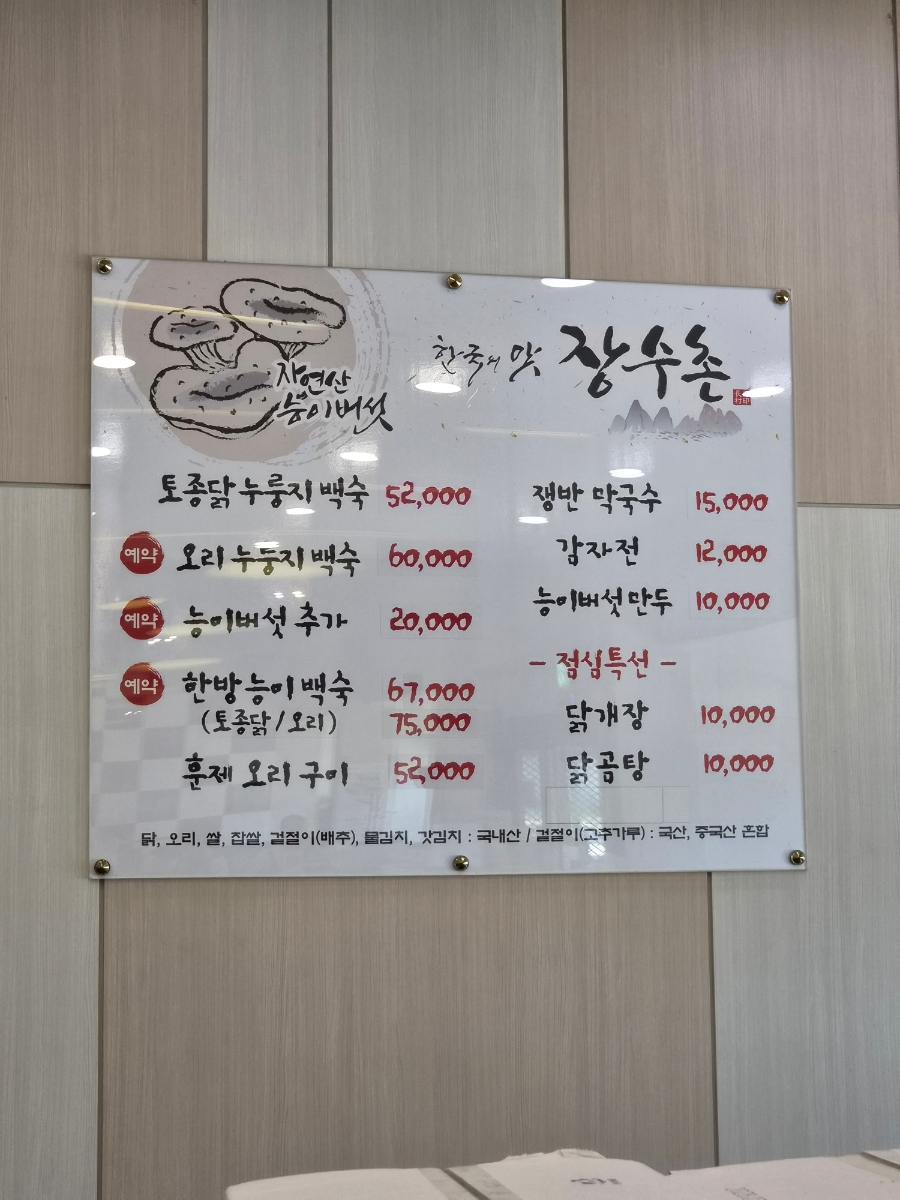 자연산
능이버섯
한국의 맛 장수촌
토종닭 누룽지 백숙 52,000
예약 오리 누룽지 백숙 60,000
예약 능이버섯 추가 20,000
예약 한방 능이 백숙 67,000
(토종닭/오리) 75,000
훈제 오리 구이 52,000
쟁반 막국수 15,000
감자전 12,000
능이버섯 만두 10,000
- 점심특선 -
닭개장 10,000
닭곰탕 10,000
닭, 오리, 쌀, 찹쌀, 겉절이(배추), 물김치, 갓김치 : 국내산 / 겉절이(고추가루) : 국산, 중국산 혼합